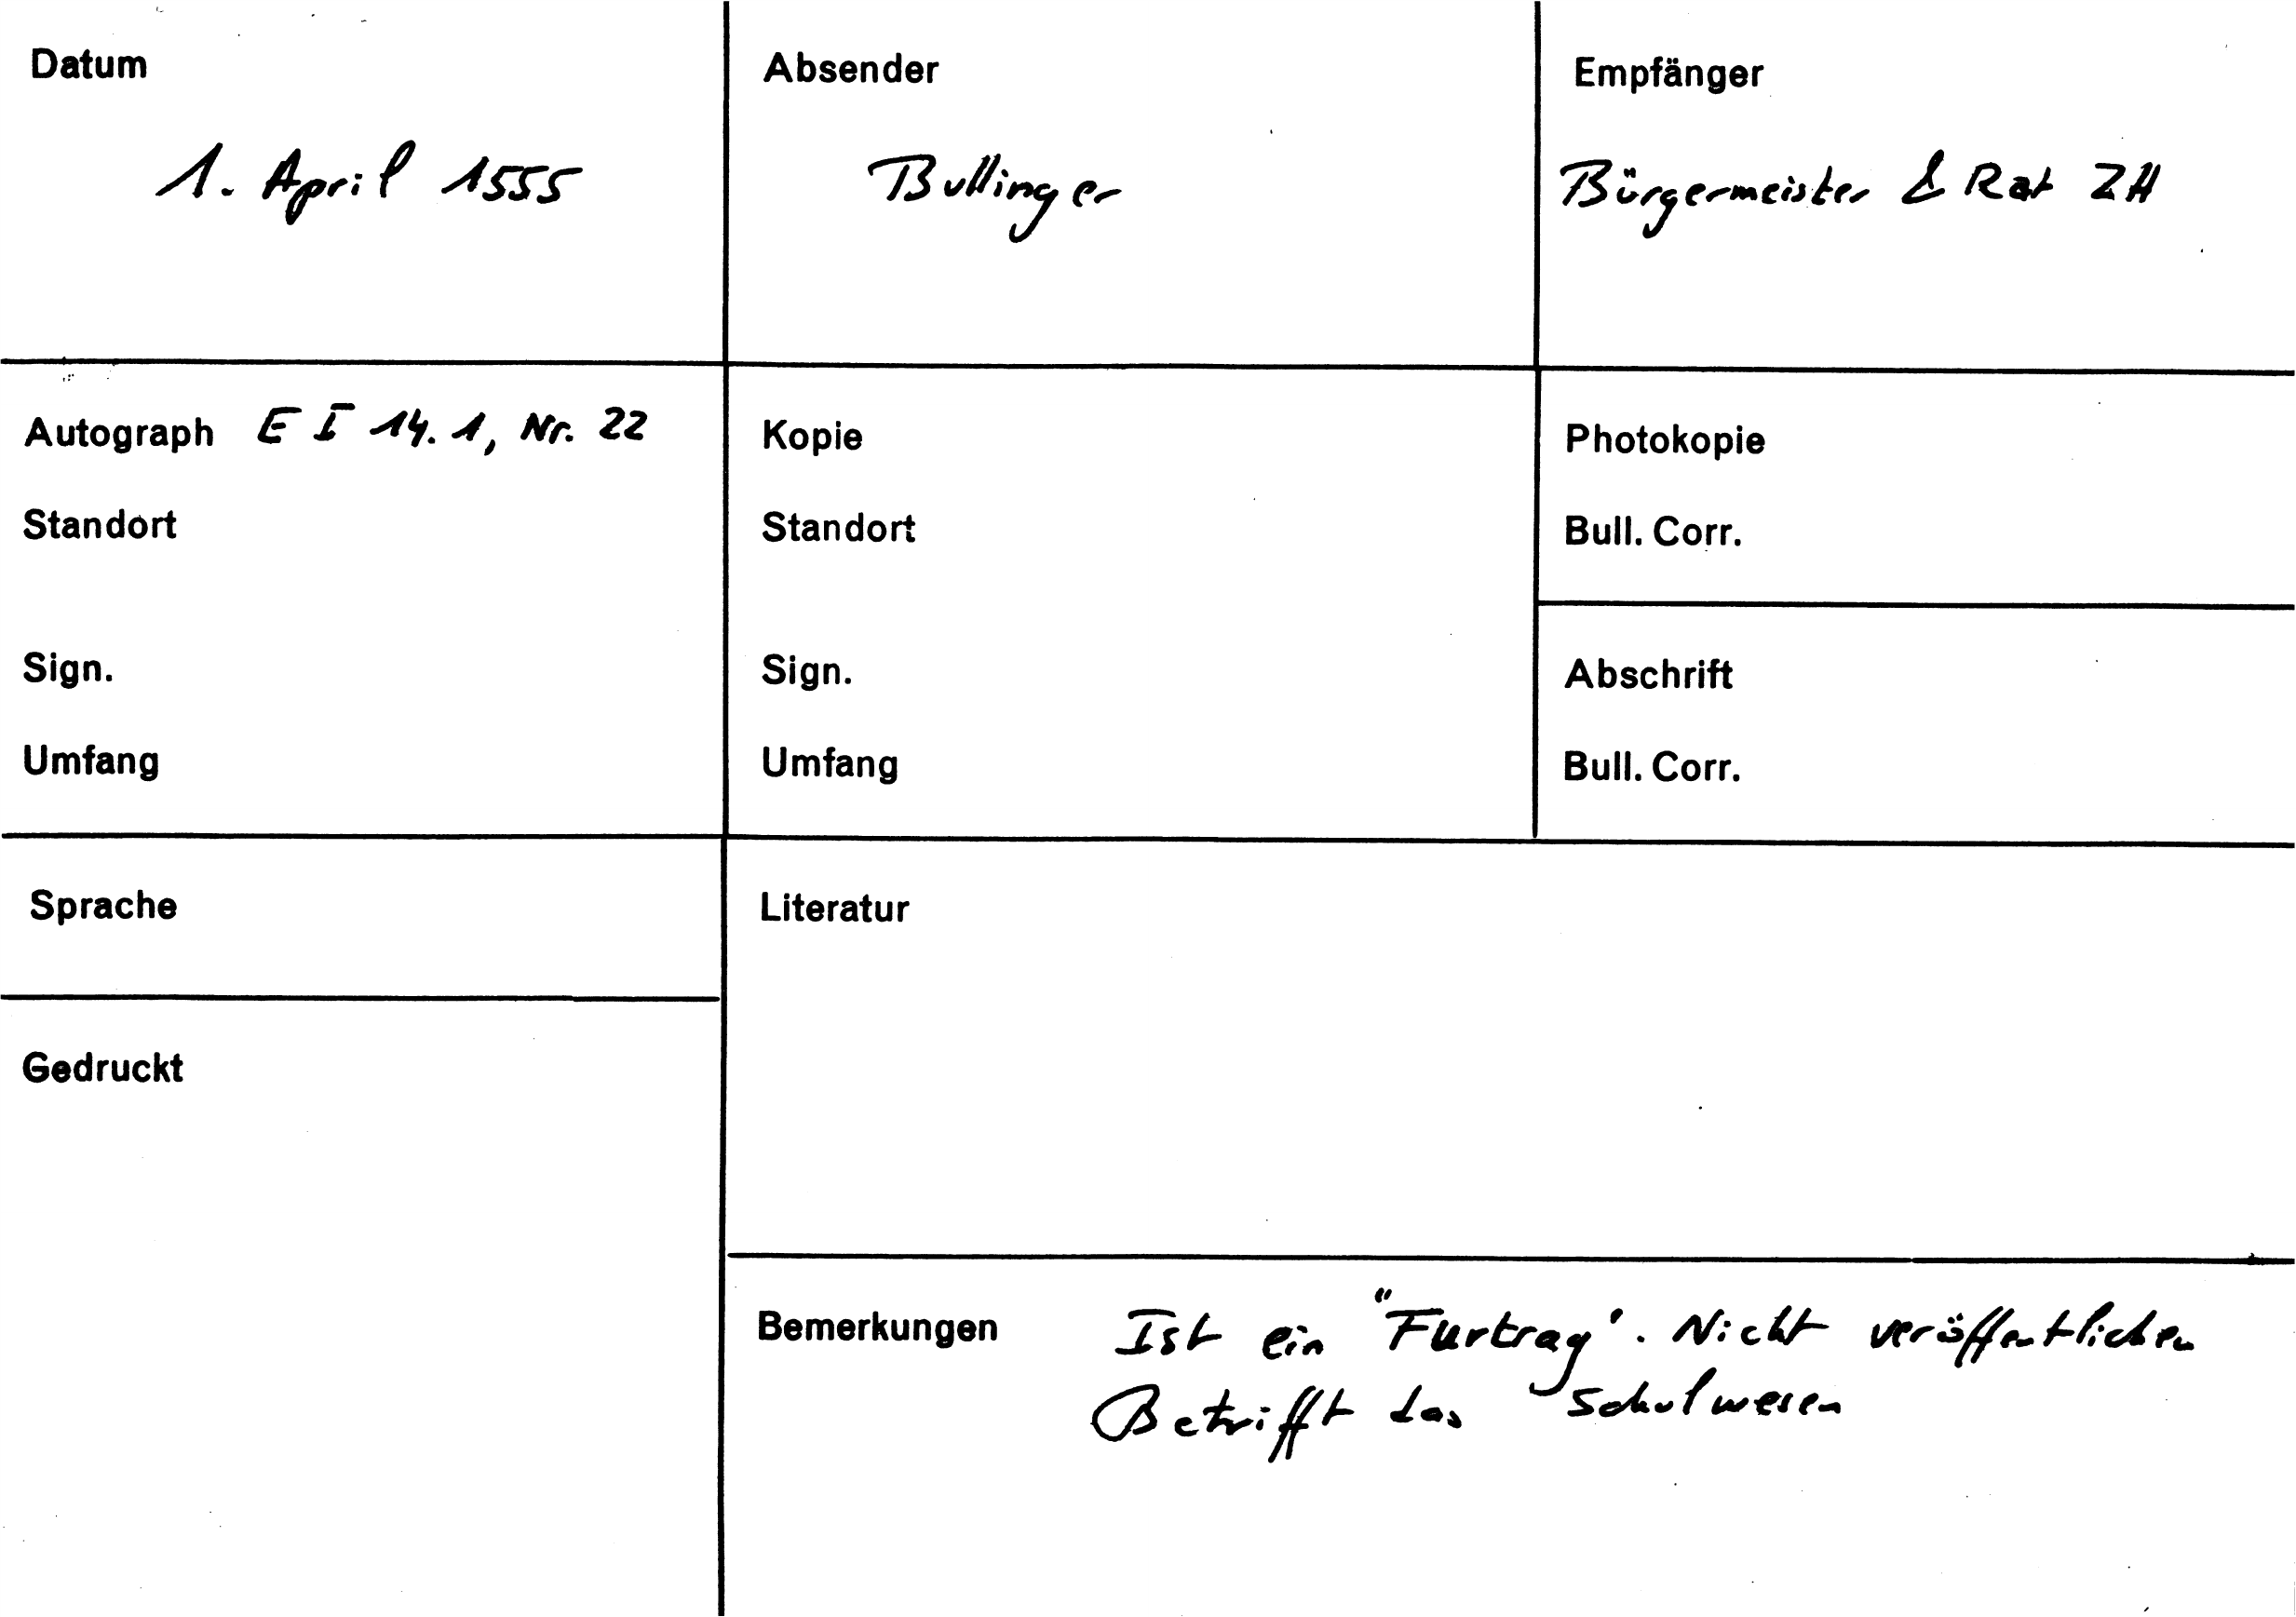 Datum
1. April 1555
Absender
Bullinger
Empfänger
Bürgermeister & Rat ZH
Autograph E I 14.1, Nr. 22
Standort
Sign.
Umfang
Kopie
Standort
Sign.
Umfang
Photokopie
Bull. Corr.
Abschrift
Bull. Corr.
Sprache
Gedruckt
Literatur
Bemerkungen Ist ein "Furtrag". Nicht veröffentlichen
Betrifft das Schulwesen